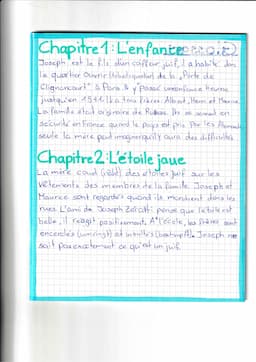 Chapitre 1: L'enfance
Joseph est le fils d'un coiffeur juif, il a habité dans
le quartier ouvrier de la „Porte de
Clignancourt" à Paris. Il y passé une enfance heureuse
jusqu'en 1941. Il a trois frères: Albert, Henri et Maurice.
La famille était originaire de Russie. Ils se sont en
sécurité en France quand le pays est pris par les Allemands
seule la mère peut imaginer qu'il y aura des difficultés.
Chapitre 2: L'étoile jaune
La mère coud (näht) des étoiles juif sur les
vêtements des membres de la famille. Joseph et
Maurice sont regardés quand ils montrent dans les
rues. L'ami de Joseph Zérati pense que l'étoile est
belle, il réagit positivement. A l'école, les frères sont
encerclés (umringt) et insultés (beschimpft). Joseph ne
sait pas exactement ce qu'est un juif.